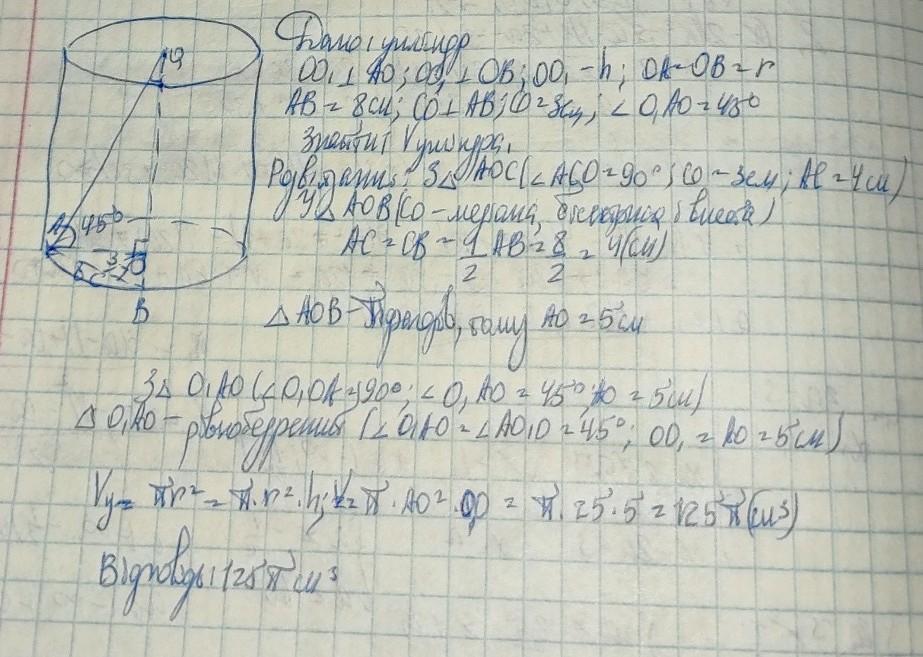 Дано: циліндр
OO₁ ⊥ AO; OO₁ ⊥ OB; OO₁ - h; OA = OB = r
AB = 8см; CO ⊥ AB; CO = 3см; ∠O₁AO = 45°
Знайти: V циліндра.
Розв'язання: З △ AOC (∠ACO = 90°; CO - 3см; AC = 4см)
У △ AOB (CO - медіана, бісектриса і висота)
AC = CB = 1/2 AB = 8/2 = 4(см)
△ AOB - Піфагорів, тому AO = 5см
З △ O₁AO (∠O₁OA = 90°; ∠O₁AO = 45°; AO = 5см)
△ O₁AO - рівнобедрений (∠O₁AO = ∠AO₁O = 45°; OO₁ = AO = 5см)
Vц = πr² = π·r²·h; V = π·AO²·OO = π·25·5 = 125π(см³)
Відповідь: 125π см³
O₁
A
45°
3
O
C
B